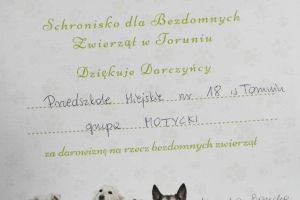 Schronisko dla Bezdomnych
Zwierząt w Toruniu
Dziękuje Darczyńcy
Przedszkole Miejskie nr 18 w Toruniu
grupa MOTYLKI
za darowiznę na rzecz bezdomnych zwierząt